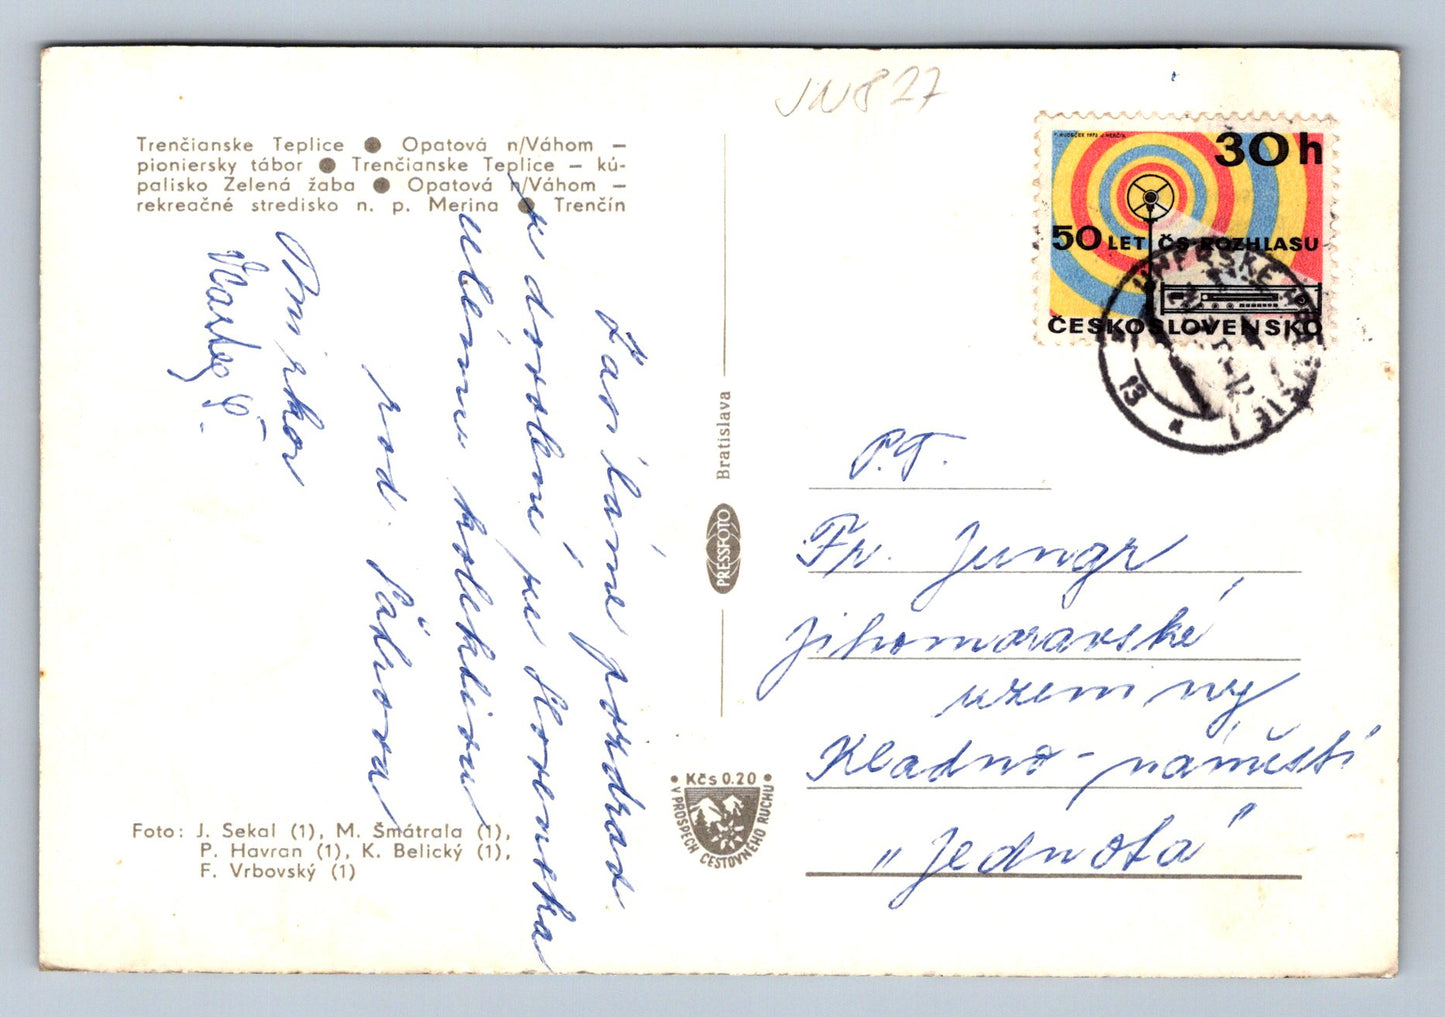 JNB 27
Trenčianske Teplice ● Opatová n/Váhom –
pioniersky tábor ● Trenčianske Teplice – kú-
palisko Zelená žaba ● Opatová n/Váhom –
rekreačné stredisko n. p. Merina ● Trenčín
pozdrav
z dovolené ze Slovenska
kolektivu
rod.
Foto: J. Sekal (1), M. Šmátrala (1),
P. Havran (1), K. Belický (1),
F. Vrbovský (1)
Bratislava
PRESSFOTO
• Kčs 0.20 •
V PROSPECH CESTOVNÉHO RUCHU
30h
50 LET ČS ROZHLASU
ČESKOSLOVENSKO
13
P.T.
Fr. Jungr
Jihomoravské
uzeniny
Kladno – náměstí
„Jednota"